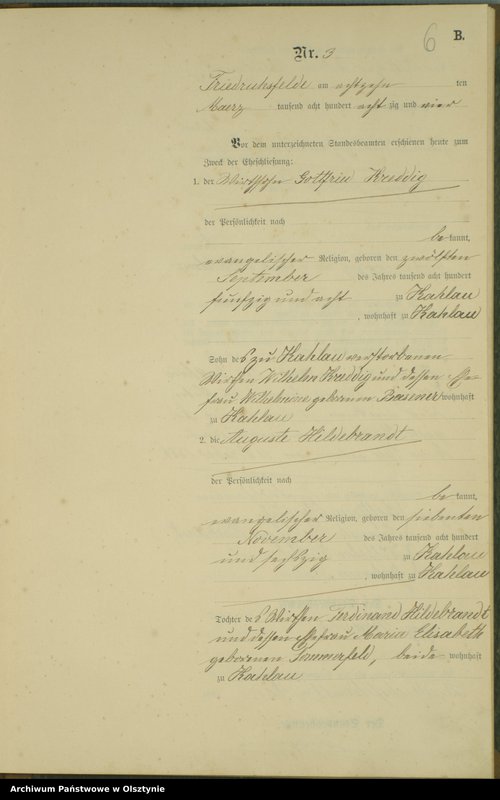 6 B.
Nr. 3
Friedrichsfelde am achtzehn ten
Maerz tausend acht hundert acht zig und vier
Vor dem unterzeichneten Standesbeamten erschienen heute zum
Zweck der Eheschließung:
1. der Wirthsohn Gottfried Kreddig
der Persönlichkeit nach
be kannt,
evangelischer Religion, geboren den zwölften
September des Jahres tausend acht hundert
fünfzig und acht zu Kahlau
, wohnhaft zu Kahlau
Sohn des zu Kahlau verstorbenen
Wirthen Wilhelm Kreddig und dessen Ehe-
frau Wilhelmine geborenen wohnhaft
zu Kahlau
2. die Auguste Hildebrandt
der Persönlichkeit nach
be kannt,
evangelischer Religion, geboren den siebenten
November des Jahres tausend acht hundert
und sechszig zu Kahlau
, wohnhaft zu Kahlau
Tochter des Wirthen Ferdinand Hildebrandt
und dessen Ehefrau Maria Elisabeth
geborenen Sommerfeld, beide wohnhaft
zu Kahlau
Archiwum Państwowe w Olsztynie